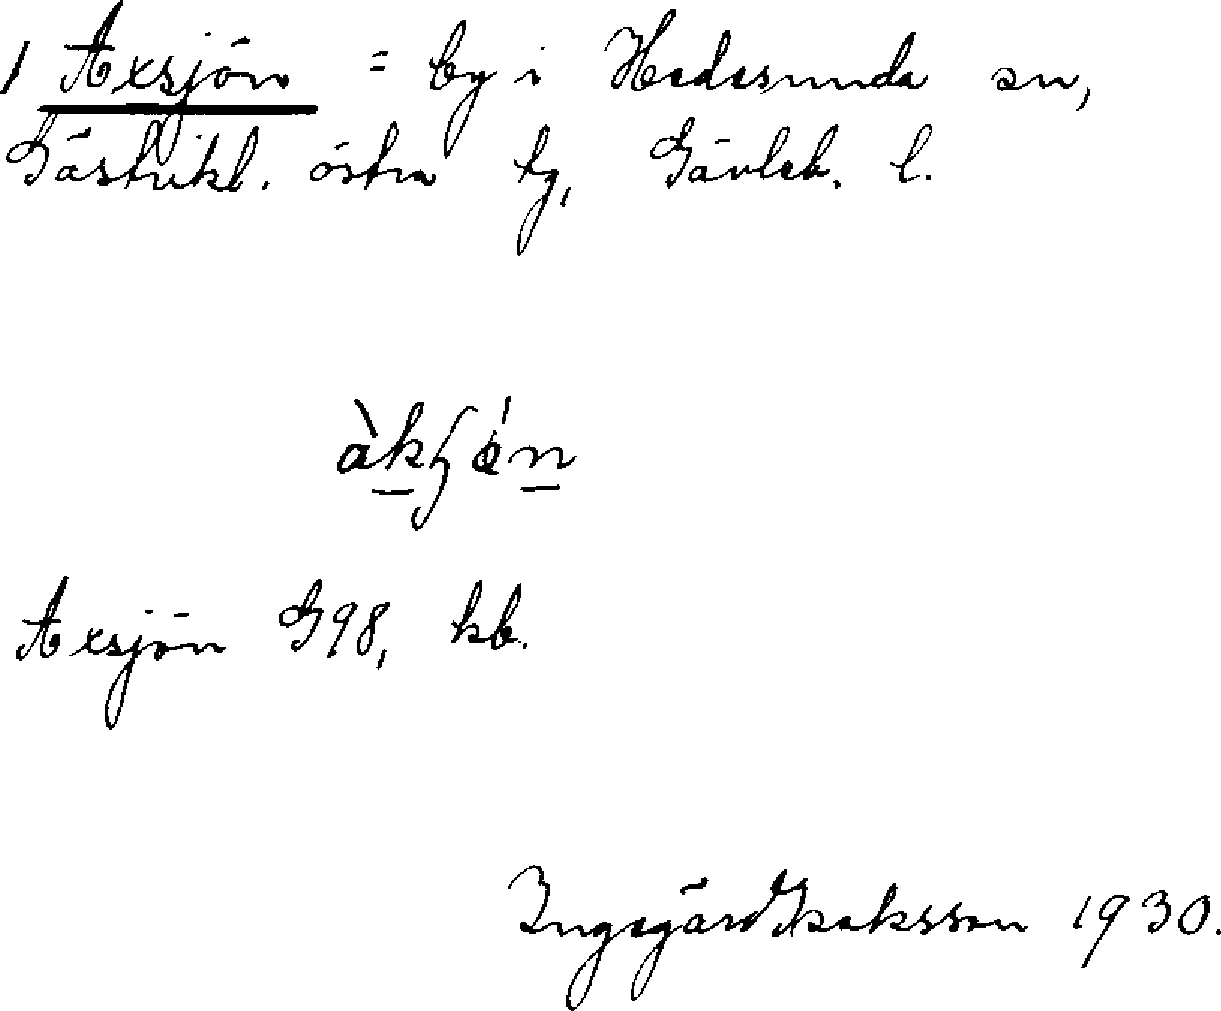 1 Axsjön = by i Hedesunda sn,
Gästrikl. östra tg, Gävleb. l.
Axsjön G98, kb.
Ingegärd Isaksson 1930.